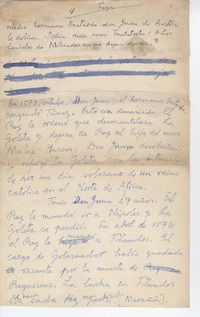 4
Fuga
medio hermano bastardo don Juan de Austria
le dolían. Podía decir como Temístocles: "Los
laureles de Milcíades no me dejan dormir."
En 1573, octubre, Don Juan, el hermano bastardo
conquistó Túnez. Esto era demasiado. El
Rey le ordenó que desmantelara la
Goleta y dejara de Rey al hijo del moro
Muley Hacem. Don Juan desobedeció
y reforzó la Goleta con la intención
de ser un día soberano de un reino
católico en el Norte de Africa.
Tenía Don Juan 27 años. El
Rey le mandó ir a Nápoles y La
Goleta se perdió. En abril de 1576
el Rey le mandó a Flandes. El
cargo de Gobernador había quedado
vacante por la muerte de
Requesens. La lucha en Flandes
era cada día más difícil (Marañón).